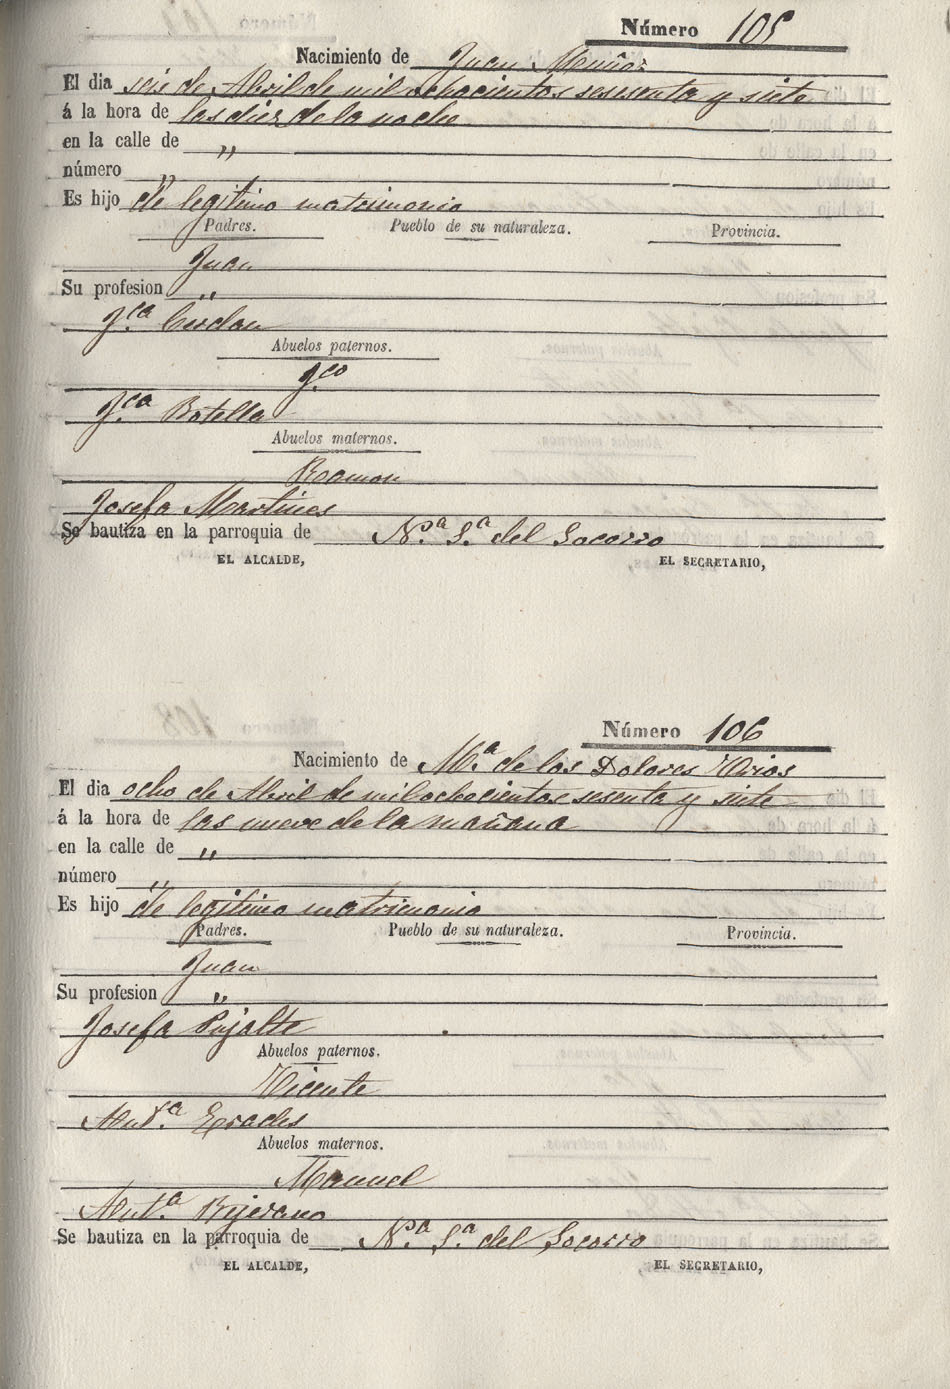 Número 105
Nacimiento de Juan Muñoz
El dia seis de Abril de mil ochocientos sesenta y siete
á la hora de las diez de la noche
en la calle de "
número "
Es hijo de legitimo matrimonio
Padres. Pueblo de su naturaleza. Provincia.
Juan
Su profesion "
Fca Cerdan
Abuelos paternos.
Fco
Fca Botella
Abuelos maternos.
Ramon
Josefa Martines
Se bautiza en la parroquia de N.a S.a del Socorro
EL ALCALDE, EL SECRETARIO,
Número 106
Nacimiento de M.a de los Dolores Rios
El dia ocho de Abril de mil ochocientos sesenta y siete
á la hora de las nueve de la mañana
en la calle de "
número "
Es hijo de legitimo matrimonio
Padres. Pueblo de su naturaleza. Provincia.
Juan
Su profesion "
Josefa Pujalte
Abuelos paternos.
Vicente
Ant.a Erades
Abuelos maternos.
Manuel
Ant.a Bejerano
Se bautiza en la parroquia de N.a S.a del Socorro
EL ALCALDE, EL SECRETARIO,